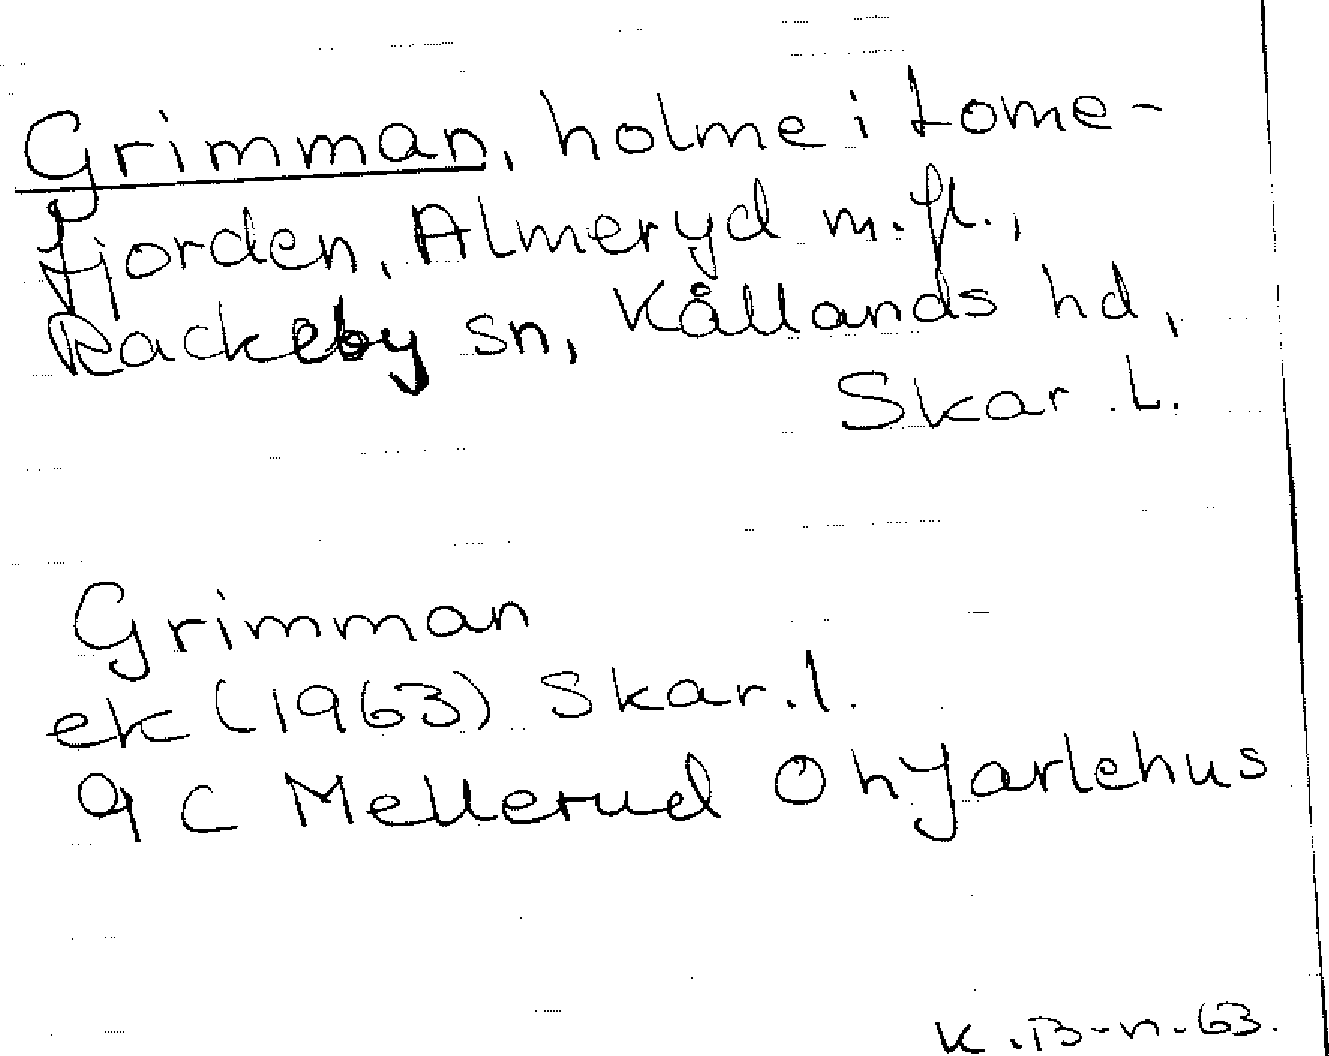 Grimman, holme i tome-
fjorden, Almeryd m.fl.,
Rackeby sn, Kållands hd,
Skar.l.
Grimman
ek (1963) Skar.l.
9 C Mellerud O h Jarlehus
K.B-n.63.